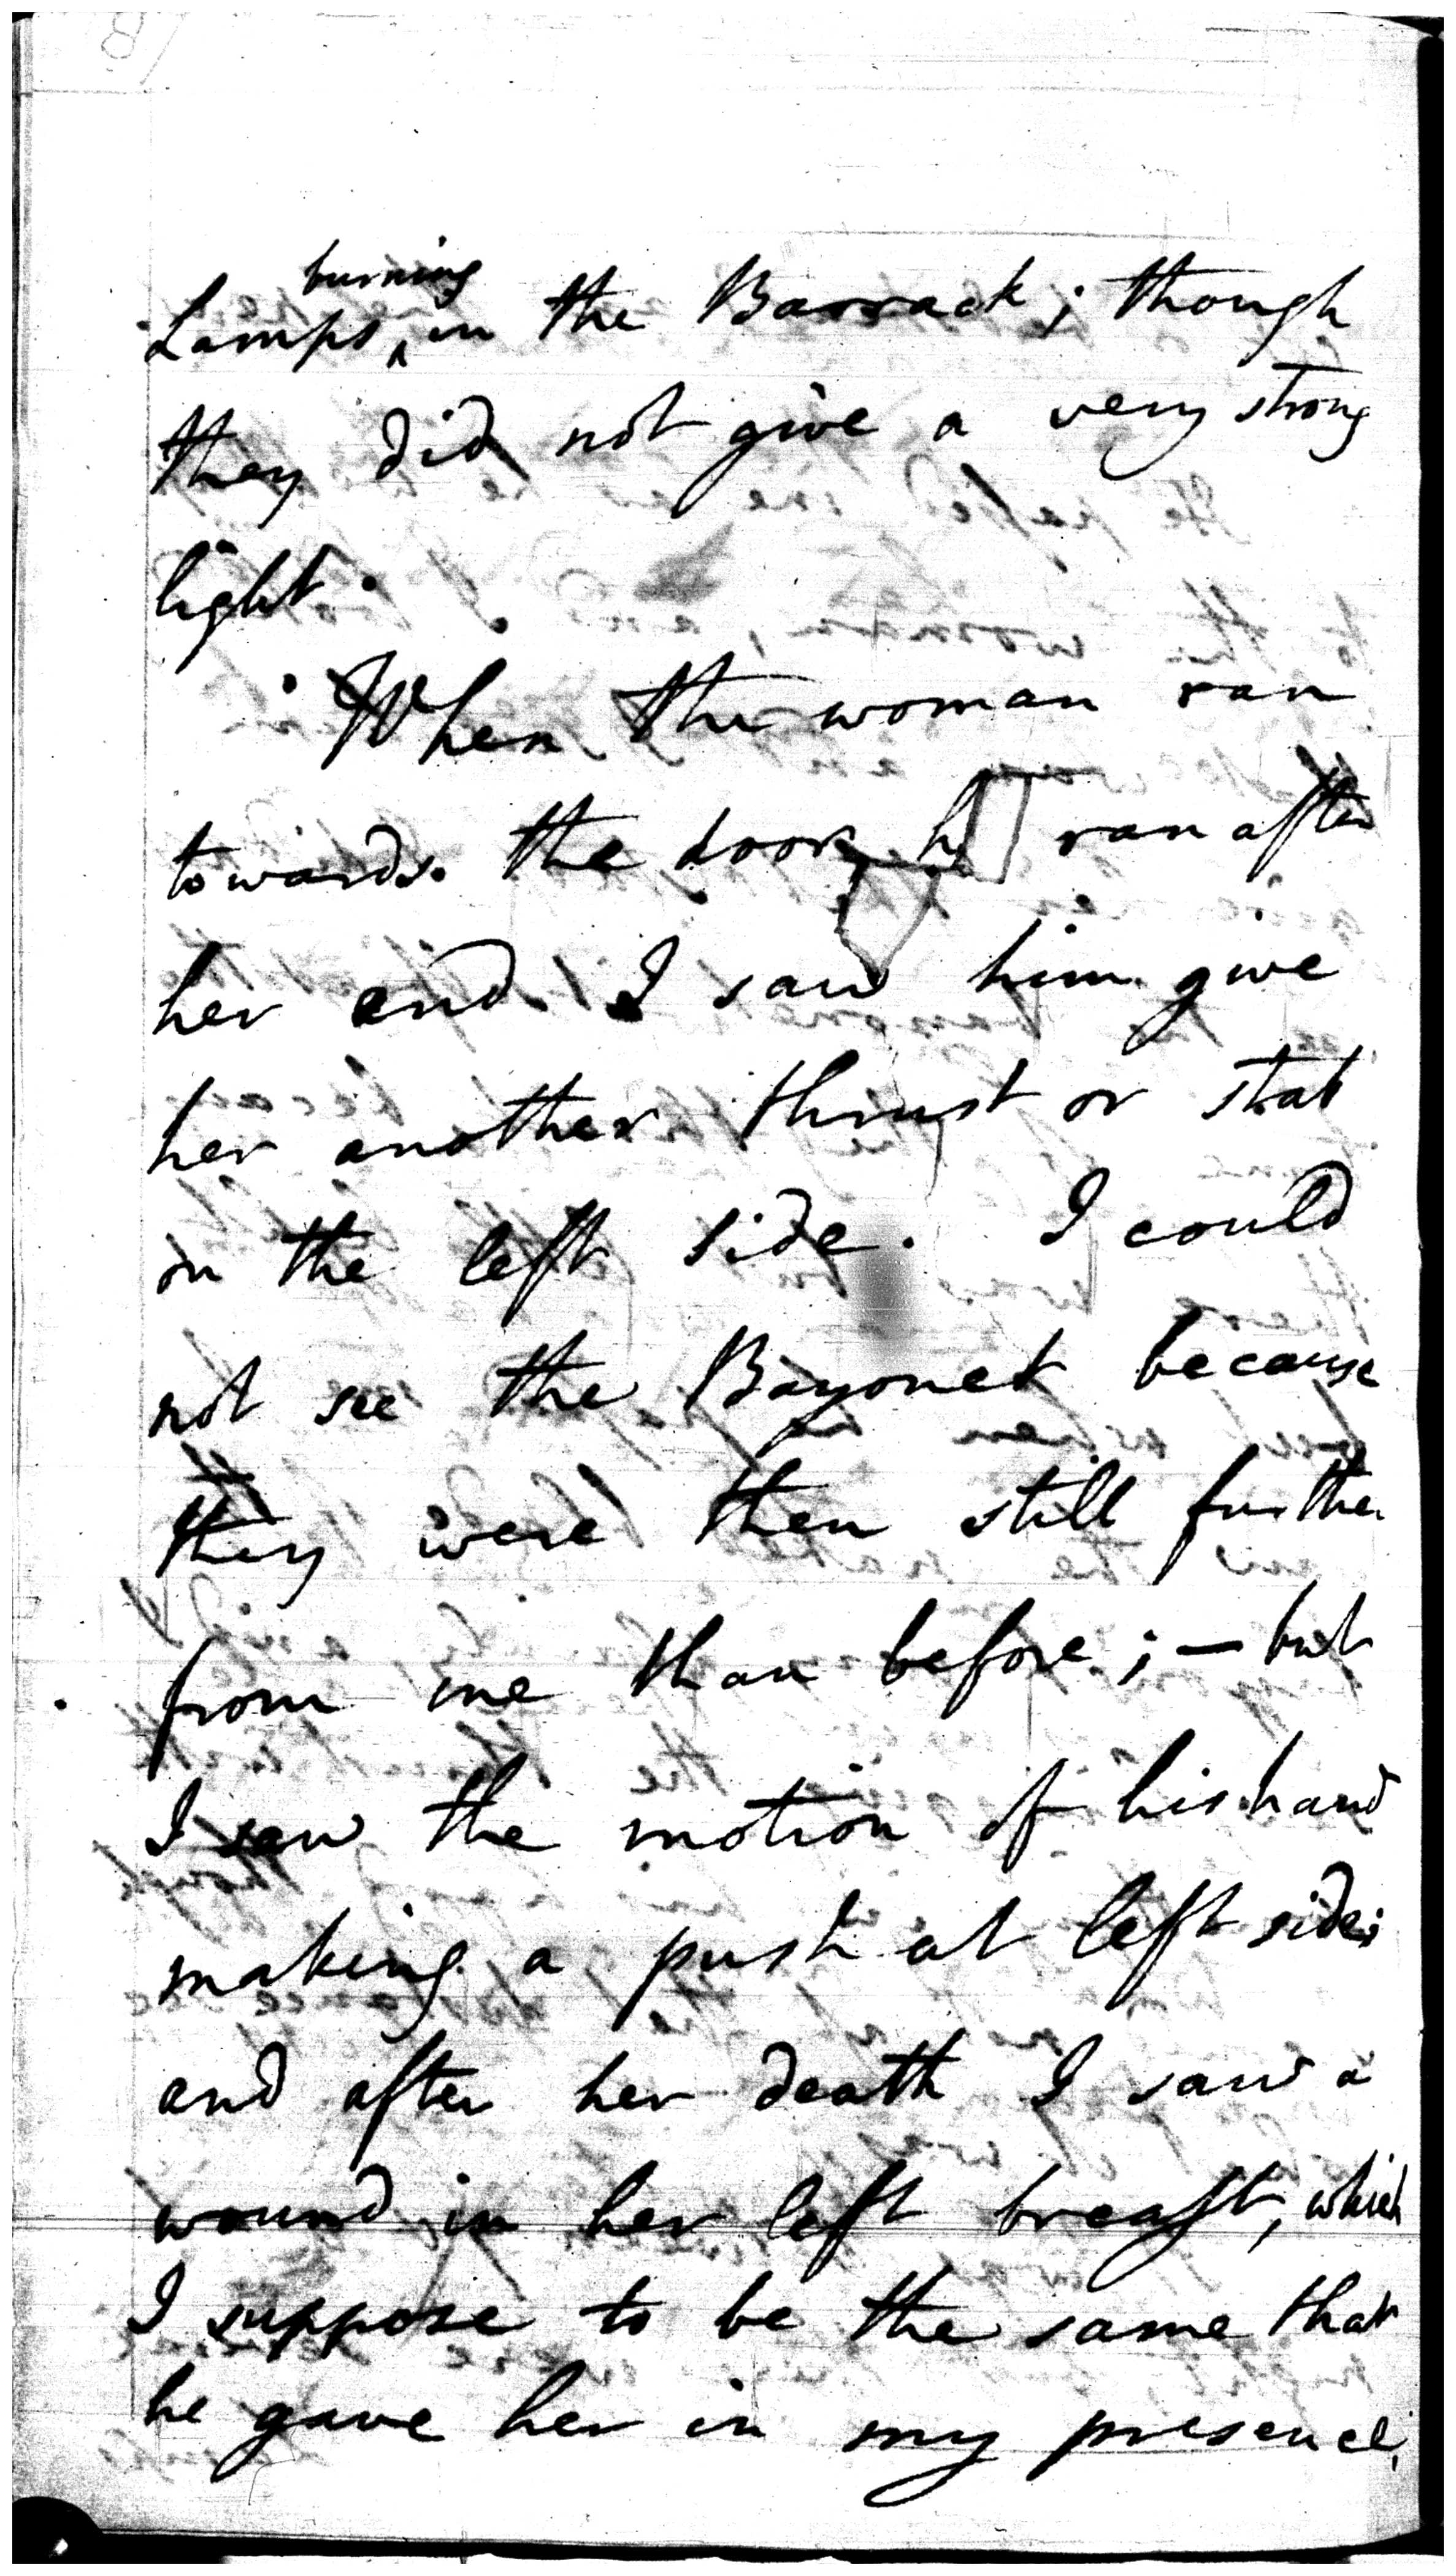 Lamps burning in the Barrack; though
they did not give a very strong
light.
When the woman ran
towards the door, h ran after
her and I saw him give
her another thrust or stab
on the left side. I could
not see the Bayonet because
they were then still further
from me than before; — but
I saw the motion of his hand
making a push at left side;
and after her death I saw a
wound in her left breast, which
I suppose to be the same that
he gave her in my presence,